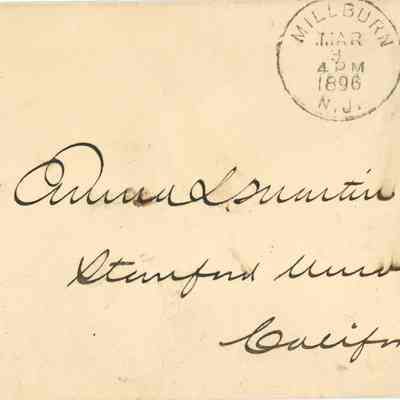 MILLBURN
MAR
3
4 PM
1896
N.J.
Anna L. Martin
Stanford Univ
Califor